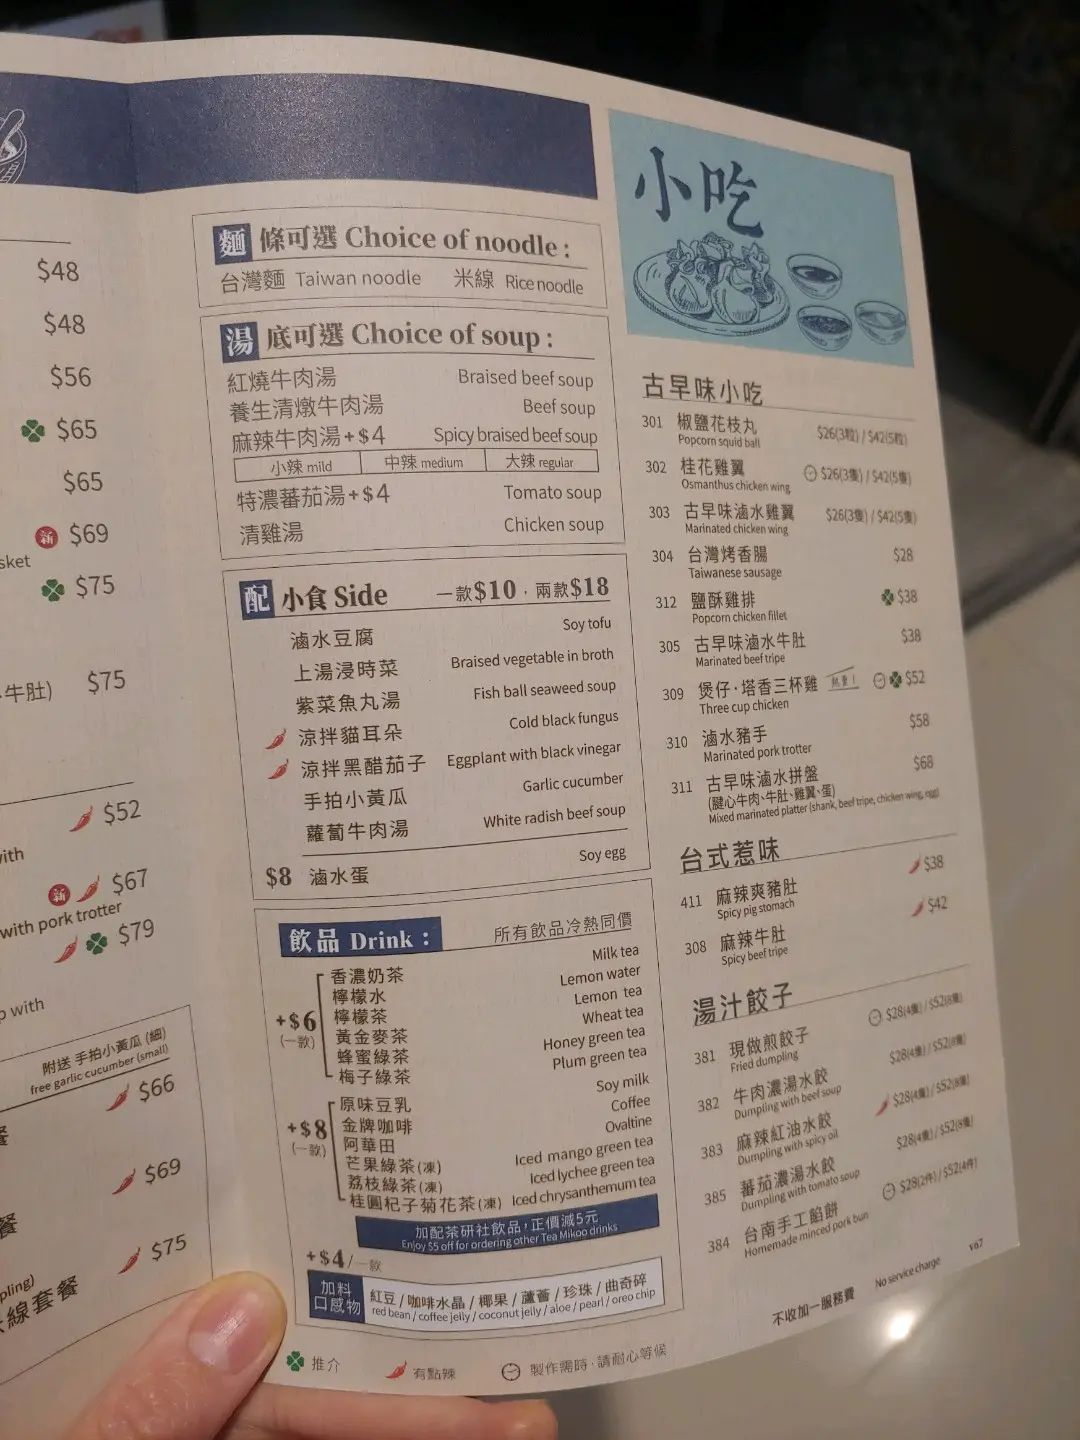 $48
$48
$56
$65
$65
新 $69
sket
$75
牛肚) $75
$52
ith
新 $67
with pork trotter
$79
p with
附送 手拍小黃瓜 (細)
free garlic cucumber (small)
$66
餐
$69
餐
$75
pling)
線套餐
麵 條可選 Choice of noodle :
台灣麵 Taiwan noodle 米線 Rice noodle
湯 底可選 Choice of soup :
紅燒牛肉湯 Braised beef soup
養生清燉牛肉湯 Beef soup
麻辣牛肉湯+$4 Spicy braised beef soup
小辣 mild 中辣 medium 大辣 regular
特濃蕃茄湯+$4 Tomato soup
清雞湯 Chicken soup
配 小食 Side 一款$10 , 兩款$18
滷水豆腐 Soy tofu
上湯浸時菜 Braised vegetable in broth
紫菜魚丸湯 Fish ball seaweed soup
涼拌貓耳朵 Cold black fungus
涼拌黑醋茄子 Eggplant with black vinegar
手拍小黃瓜 Garlic cucumber
蘿蔔牛肉湯 White radish beef soup
$8 滷水蛋 Soy egg
飲品 Drink : 所有飲品冷熱同價
+$6
(一款)
香濃奶茶 Milk tea
檸檬水 Lemon water
檸檬茶 Lemon tea
黃金麥茶 Wheat tea
蜂蜜綠茶 Honey green tea
梅子綠茶 Plum green tea
+$8
(一款)
原味豆乳 Soy milk
金牌咖啡 Coffee
阿華田 Ovaltine
芒果綠茶(凍) Iced mango green tea
荔枝綠茶(凍) Iced lychee green tea
桂圓杞子菊花茶(凍) Iced chrysanthemum tea
加配茶研社飲品,正價減5元
Enjoy $5 off for ordering other Tea Mikoo drinks
+$4/一款
加料
口感物
紅豆 / 咖啡水晶 / 椰果 / 蘆薈 / 珍珠 / 曲奇碎
red bean / coffee jelly / coconut jelly / aloe / pearl / oreo chip
推介 有點辣 製作需時,請耐心等候
小吃
古早味小吃
301 椒鹽花枝丸 $26(3粒) / $42(5粒)
Popcorn squid ball
302 桂花雞翼 $26(3隻) / $42(5隻)
Osmanthus chicken wing
303 古早味滷水雞翼 $26(3隻) / $42(5隻)
Marinated chicken wing
304 台灣烤香腸 $28
Taiwanese sausage
312 鹽酥雞排 $38
Popcorn chicken fillet
305 古早味滷水牛肚 $38
Marinated beef tripe
309 煲仔·塔香三杯雞 熱賣! $52
Three cup chicken
310 滷水豬手 $58
Marinated pork trotter
311 古早味滷水拼盤 $68
(腱心牛肉、牛肚、雞翼、蛋)
Mixed marinated platter (shank, beef tripe, chicken wing, egg)
台式惹味
411 麻辣爽豬肚 $38
Spicy pig stomach
308 麻辣牛肚 $42
Spicy beef tripe
湯汁餃子
381 現做煎餃子 $28(4隻) / $52(8隻)
Fried dumpling
382 牛肉濃湯水餃 $28(4隻) / $52(8隻)
Dumpling with beef soup
383 麻辣紅油水餃 $28(4隻) / $52(8隻)
Dumpling with spicy oil
385 蕃茄濃湯水餃 $28(4隻) / $52(8隻)
Dumpling with tomato soup
384 台南手工餡餅 $28(2件) / $52(4件)
Homemade minced pork bun
不收加一服務費 No service charge v67